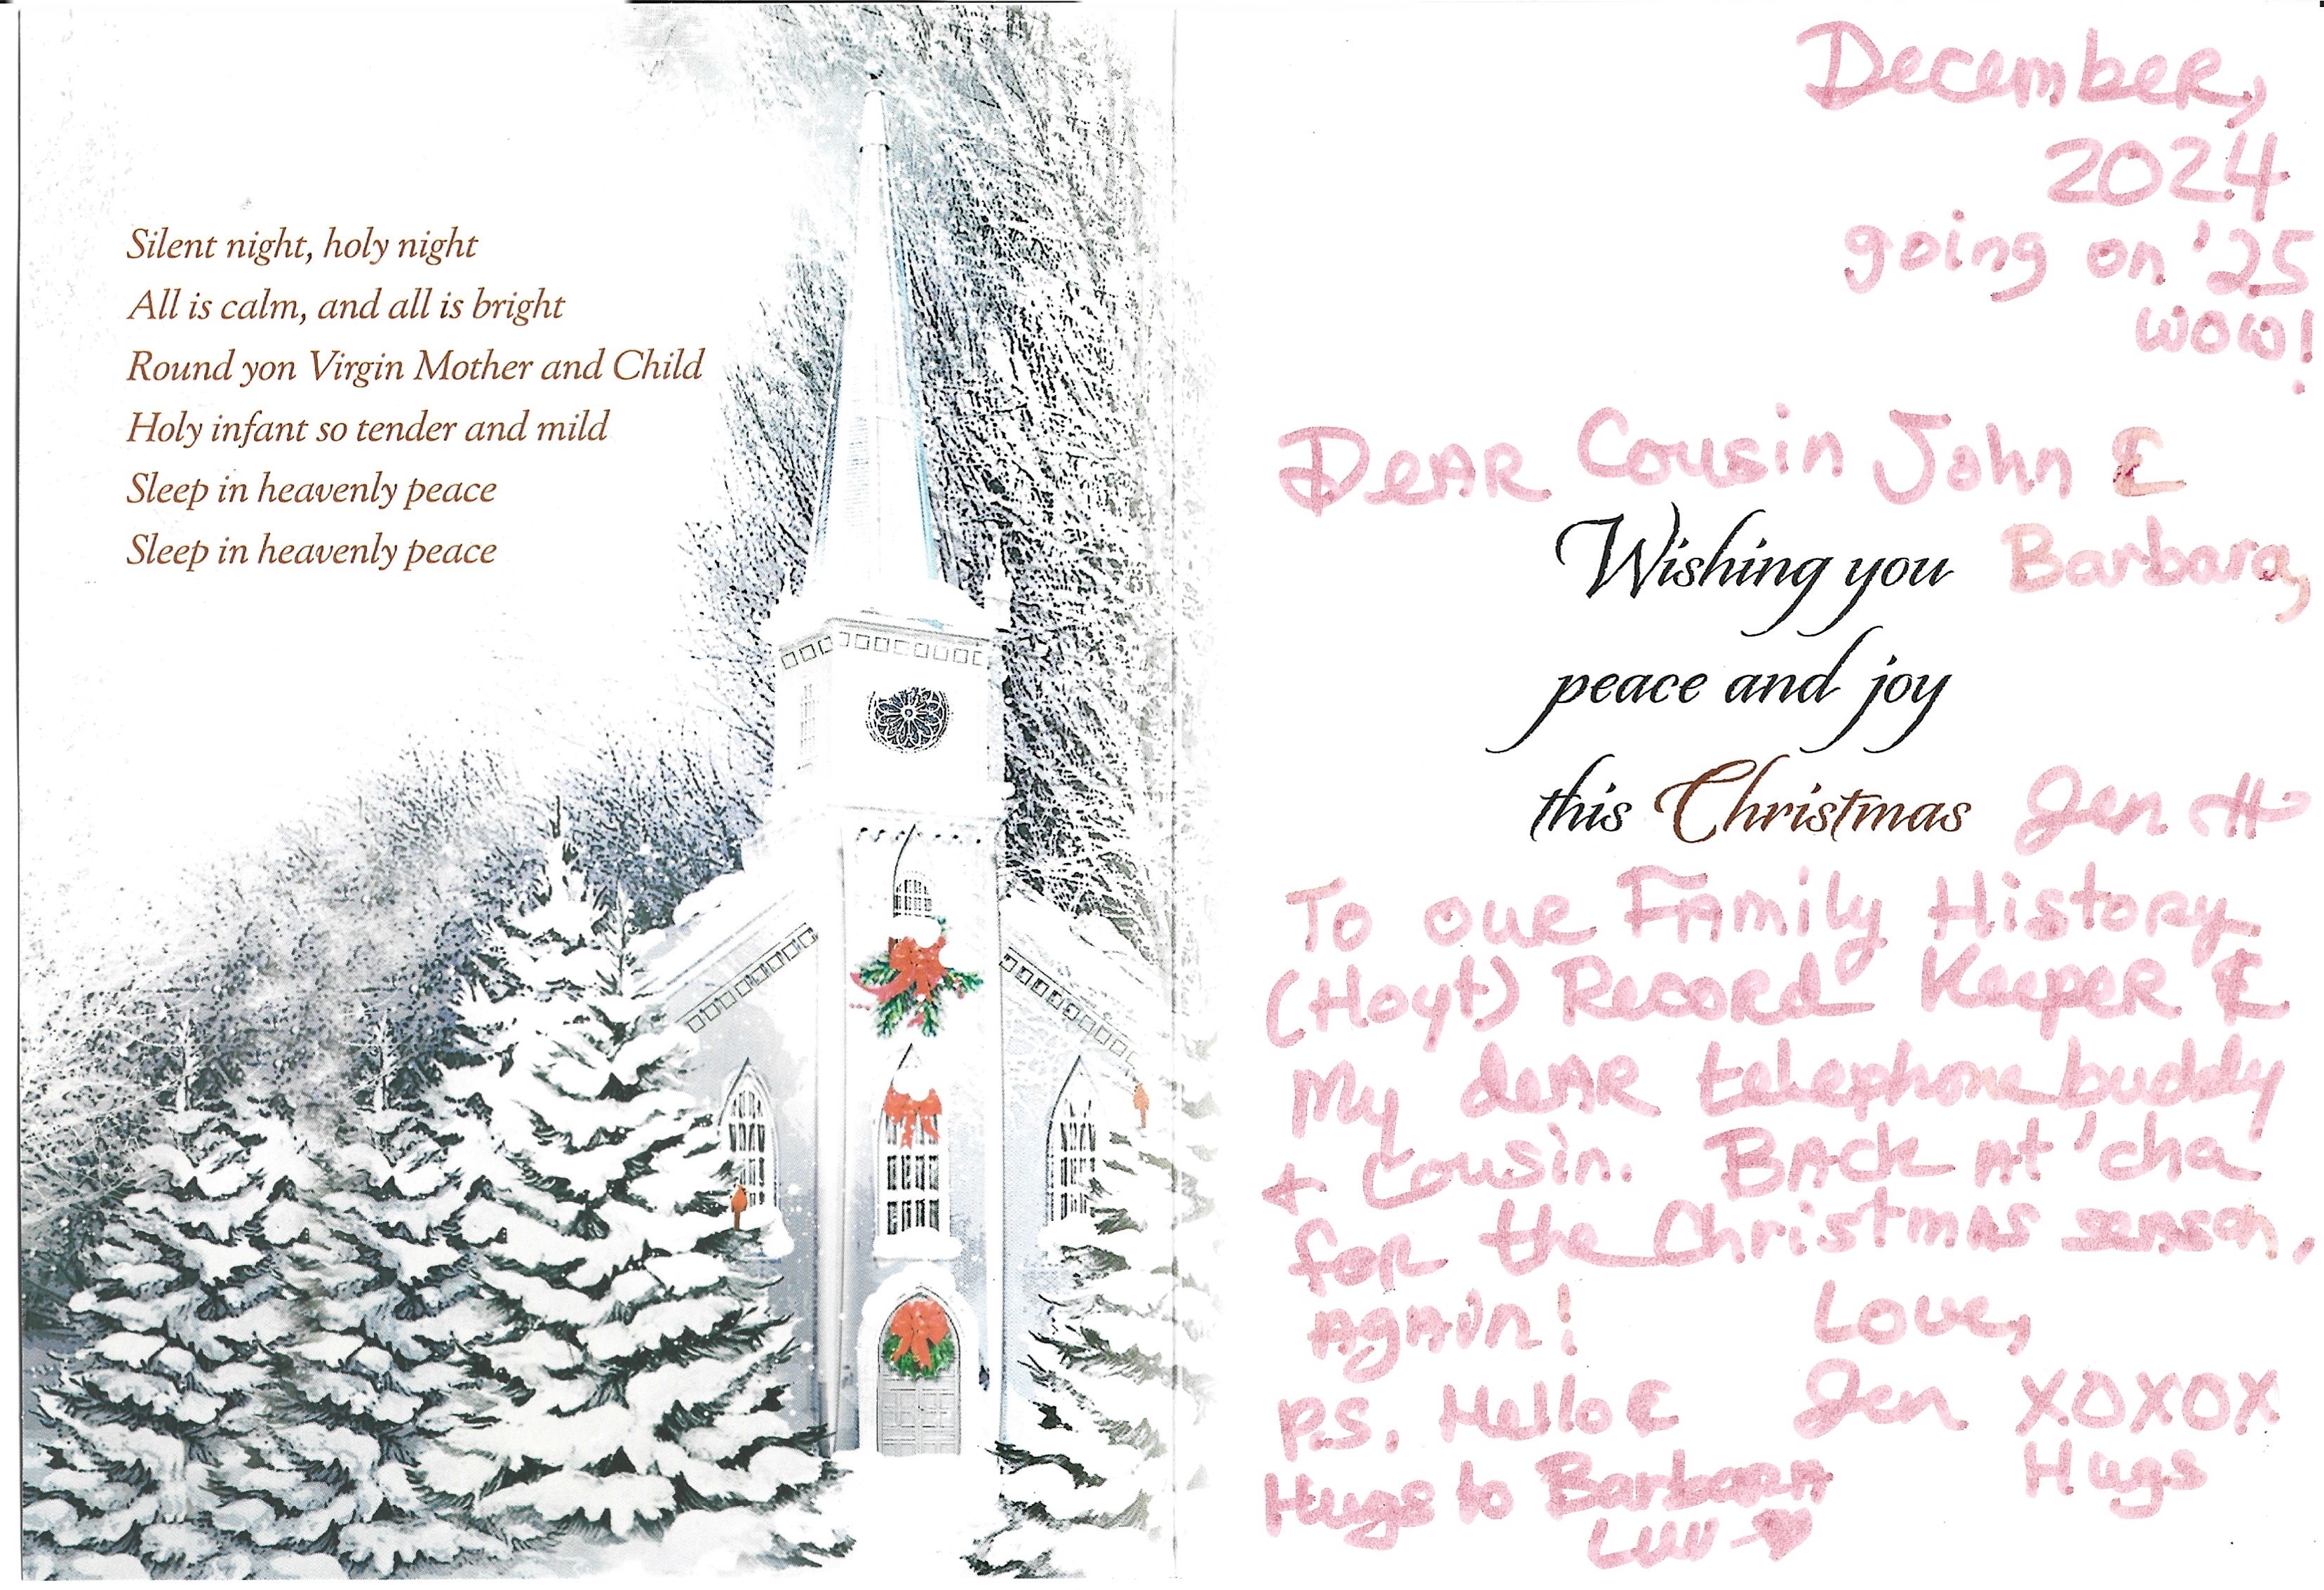 Silent night, holy night
All is calm, and all is bright
Round yon Virgin Mother and Child
Holy infant so tender and mild
Sleep in heavenly peace
Sleep in heavenly peace
December,
2024
going on '25
wow!
Dear Cousin John &
Barbara,
Wishing you
peace and joy
this Christmas
Jen H
To our Family History
(Hoyt) Record Keeper &
My deAR telephone buddy
+ Cousin. BAck At 'cha
for the Christmas season,
AgAin!
Love,
Jen XOXOX
Hugs
P.S. Hello &
Hugs to Barbara
Luv